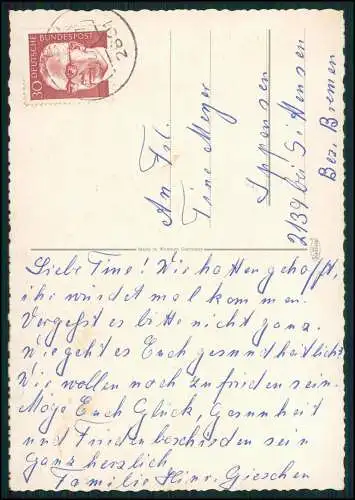 30
DEUTSCHE
BUNDESPOST
An Frl.
Tine Meyer
Ippensen
2139 bei Sittensen
Bez. Bremen
Made in Western Germany
Liebe Tine! Wir hatten gehofft,
ihr würdet mal kommen.
Vergeßt es bitte nicht ganz.
Wie geht es Euch gesundheitlich?
Wir wollen noch zufrieden sein.
Möge Euch Glück, Gesunheit
und Frieden beschieden sein
ganz herzlich
Familie Hinr. Gieschen